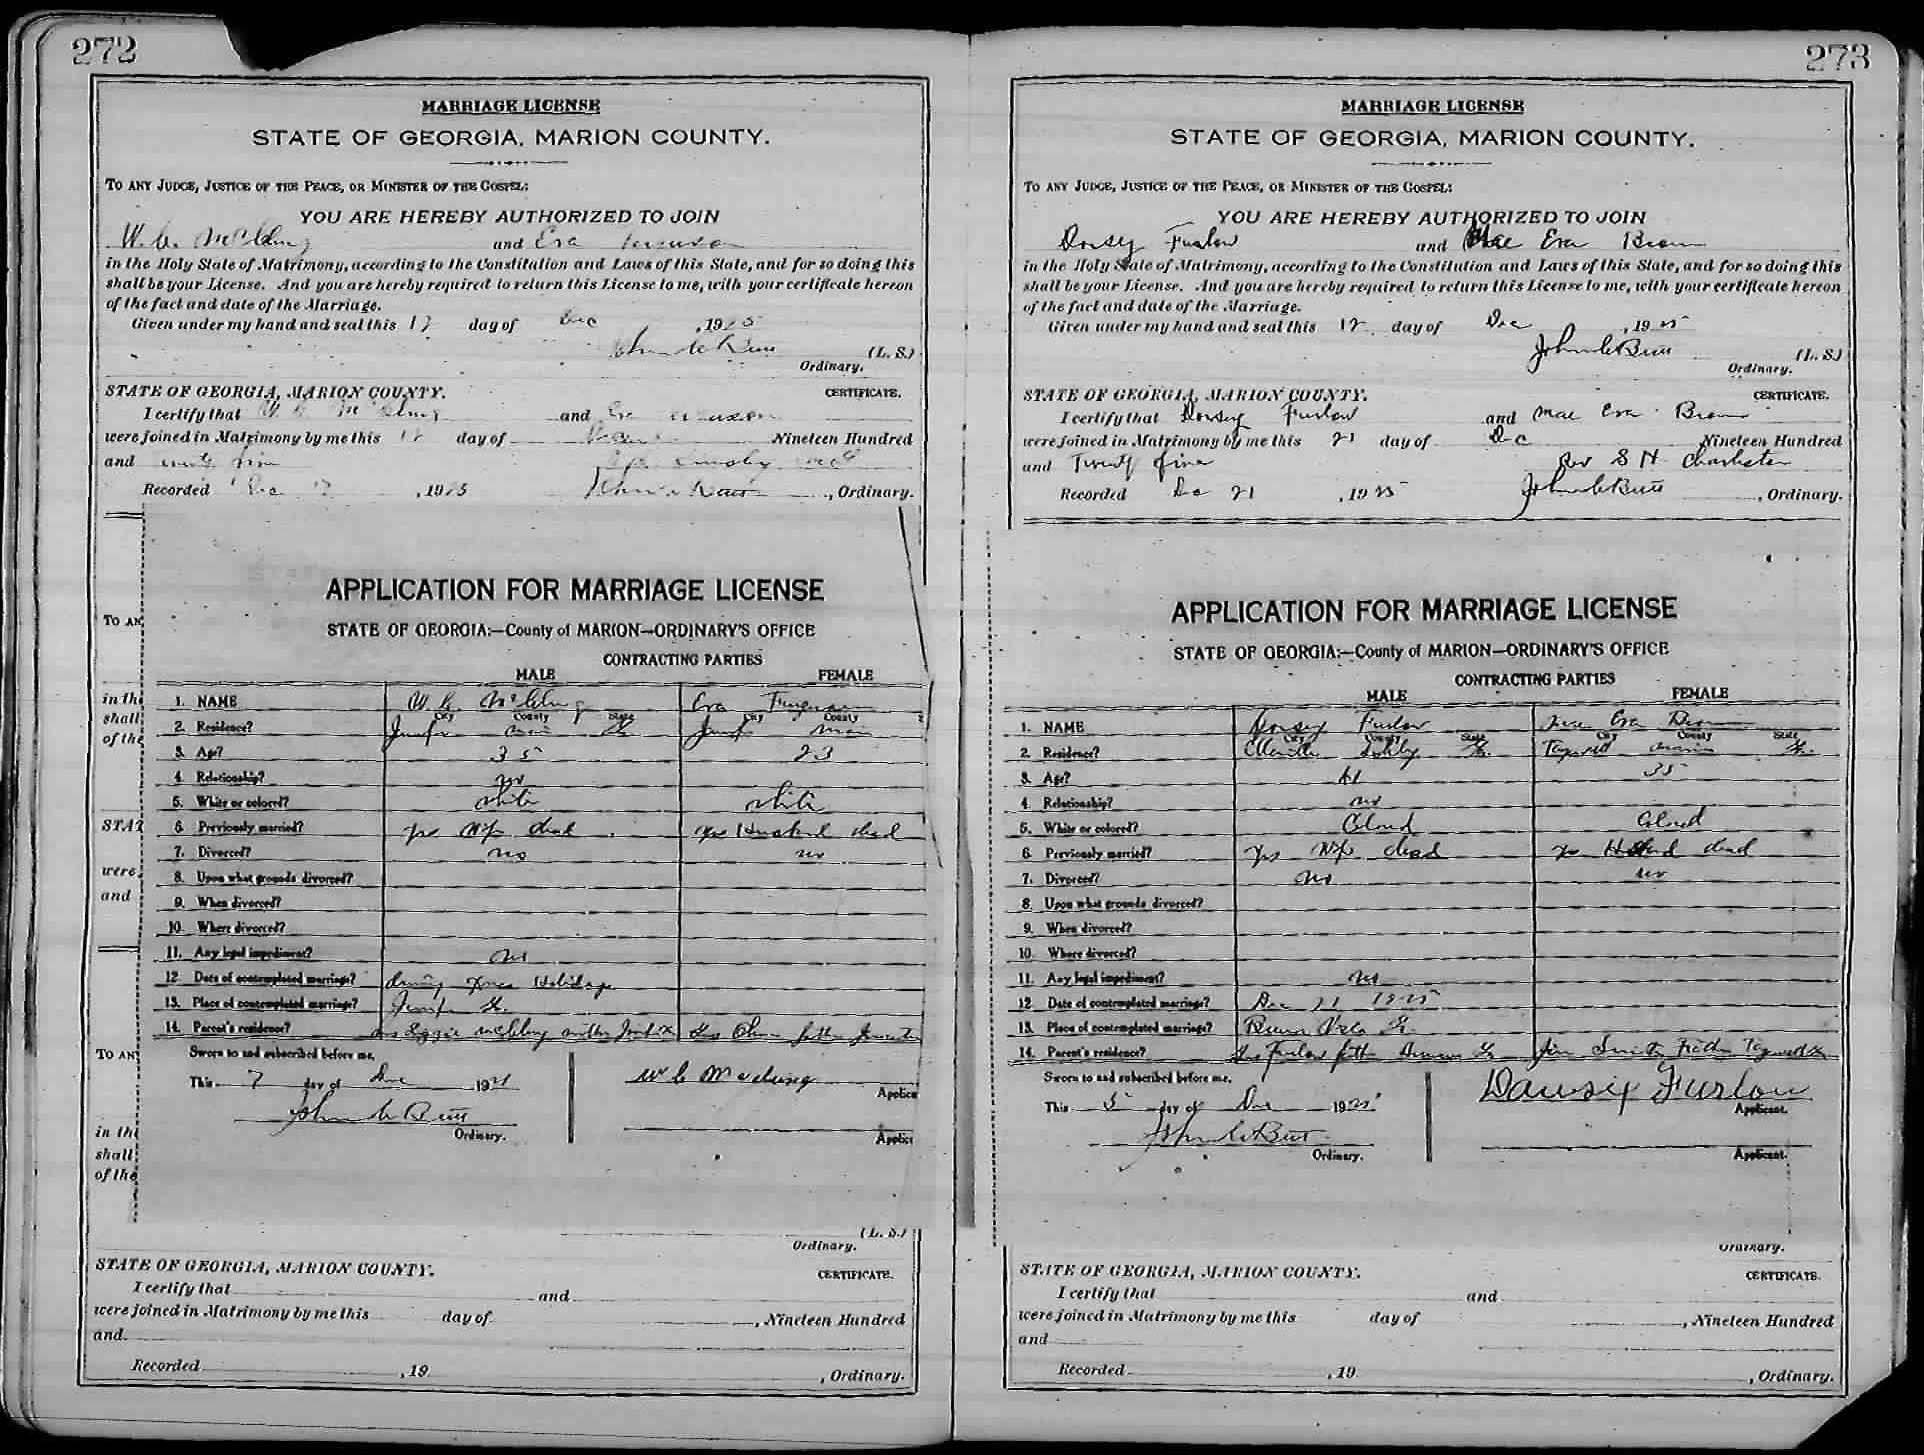 272
MARRIAGE LICENSE
STATE OF GEORGIA, MARION COUNTY.
TO ANY JUDGE, JUSTICE OF THE PEACE, OR MINISTER OF THE GOSPEL:
YOU ARE HEREBY AUTHORIZED TO JOIN
W. C. and Eva
in the Holy State of Matrimony, according to the Constitution and Laws of this State, and for so doing this
shall be your License. And you are hereby required to return this License to me, with your certificate hereon
of the fact and date of the Marriage.
Given under my hand and seal this day of Dec , 1925
John C Butt (L. S.)
Ordinary.
STATE OF GEORGIA, MARION COUNTY. CERTIFICATE.
I certify that and Eva
were joined in Matrimony by me this day of Nineteen Hundred
and
Recorded Dec , 1925 John C Butt , Ordinary.
TO AN
in the
shall
of the
STAT
were
and
TO AN
in the
shall
of the
APPLICATION FOR MARRIAGE LICENSE
STATE OF GEORGIA:—County of MARION—ORDINARY'S OFFICE
CONTRACTING PARTIES
MALE FEMALE
1. NAME W. C. Eva Ferguson
City County State City County
2. Residence? Ga
3. Age? 35 23
4. Relationship? no
5. White or colored? white white
6. Previously married? yes Wife dead yes Husband dead
7. Divorced? no no
8. Upon what grounds divorced?
9. When divorced?
10. Where divorced?
11. Any legal impediment? no
12. Date of contemplated marriage? during Xmas Holidays
13. Place of contemplated marriage? Ga.
14. Parent's residence? mother father
Sworn to and subscribed before me,
This 7 day of Dec 192
John C Butt
Ordinary.
W C
Applica
Applica
(L. S.)
Ordinary.
STATE OF GEORGIA, MARION COUNTY. CERTIFICATE.
I certify that and
were joined in Matrimony by me this day of , Nineteen Hundred
and
Recorded , 19 , Ordinary.
273
MARRIAGE LICENSE
STATE OF GEORGIA, MARION COUNTY.
TO ANY JUDGE, JUSTICE OF THE PEACE, OR MINISTER OF THE GOSPEL:
YOU ARE HEREBY AUTHORIZED TO JOIN
Dorsey Furlow and Mae Eva Brown
in the Holy State of Matrimony, according to the Constitution and Laws of this State, and for so doing this
shall be your License. And you are hereby required to return this License to me, with your certificate hereon
of the fact and date of the Marriage.
Given under my hand and seal this 12 day of Dec , 1925
John C Butt (L. S.)
Ordinary.
STATE OF GEORGIA, MARION COUNTY. CERTIFICATE.
I certify that Dorsey Furlow and Mae Eva Brown
were joined in Matrimony by me this 21 day of Dec Nineteen Hundred
and Twenty five Rev S H Charleston
Recorded Dec 21 , 1925 John C Butt , Ordinary.
APPLICATION FOR MARRIAGE LICENSE
STATE OF GEORGIA:—County of MARION—ORDINARY'S OFFICE
CONTRACTING PARTIES
MALE FEMALE
1. NAME Dorsey Furlow Mae Eva Brown
City County State City County State
2. Residence? Ellaville Schley Ga. Tazewell Marion Ga.
3. Age? 41 35
4. Relationship? no
5. White or colored? Colored Colored
6. Previously married? yes Wife dead yes Husband dead
7. Divorced? no no
8. Upon what grounds divorced?
9. When divorced?
10. Where divorced?
11. Any legal impediment? no
12. Date of contemplated marriage? Dec 21 1925
13. Place of contemplated marriage? Buena Vista Ga.
14. Parent's residence? Furlow father Ga Jim Smith Father Tazewell Ga
Sworn to and subscribed before me,
This 5 day of Dec 1925
John C Butt
Ordinary.
Dawsix Furlow
Applicant.
Applicant.
Ordinary.
STATE OF GEORGIA, MARION COUNTY. CERTIFICATE.
I certify that and
were joined in Matrimony by me this day of , Nineteen Hundred
and
Recorded , 19 , Ordinary.